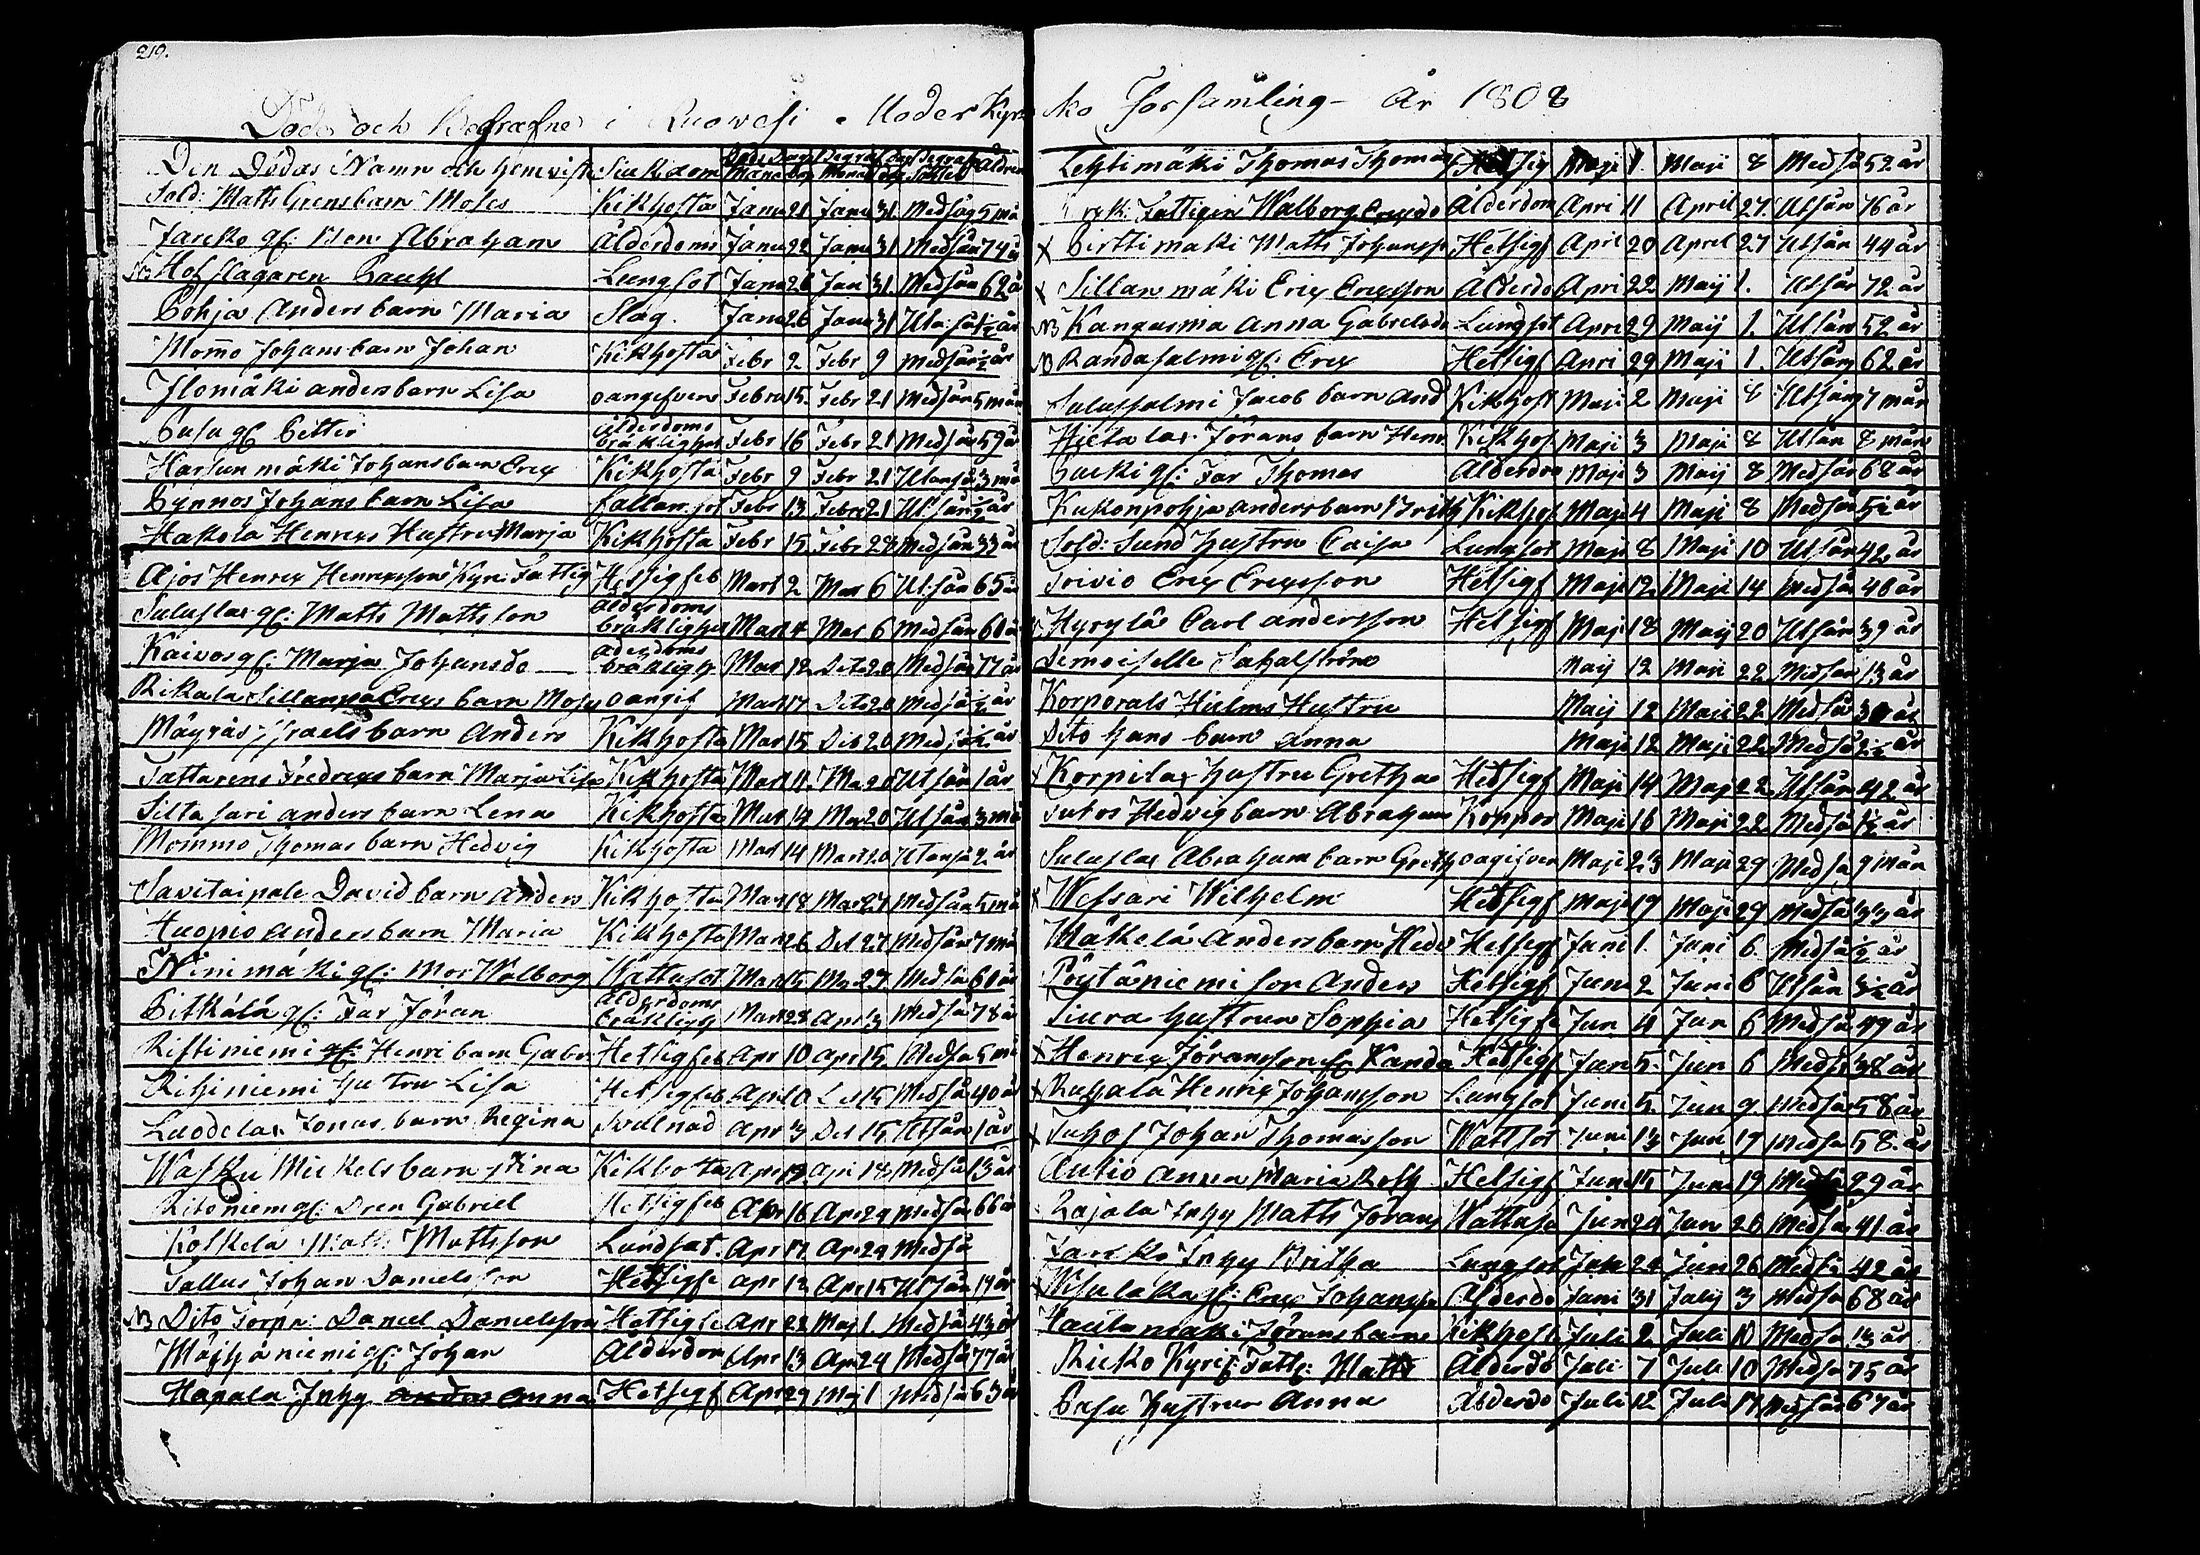 219.
Döde och Begrafne i Ruovesi Moder Kyrko Församling År 1808
Den Dödas Namn och hemvist Siukdom Döde Dag Begraf Dag Begraf Åldren
Sold: Matts Grens barn Moses Kikhosta Janu 21 Janu 31 Medsåg 5 må
Jarcko gf: Abraham Ålderdoms Janu 22 Janu 31 Medsån 74 å
NB Hofslagaren Lungsot Janu 26 Jan 31 Medsån 62 å
Pohja Anders barn Maria Slag. Janu 26 Janu 31 Utan så 1/2 år
Mom̄o Johans barn Johan Kikhosta Febr 2. Febr 9 Medsån 1/2 år
Ylomäki anders barn Lisa oangefven Febru 15. Febr 21 Medsån 5 mån
Pasu gf Petter Ålderdoms bräklighet Febr 16 Febr 21 Medsån 59 år
Harjun mäki Johans barn Erix Kikhosta Febr 9 Febr 21 Utanså 3 må
Pynnos Johans barn Lisa fallan. sot Febr 13 Febru 21 Ut. sån 1/2 år
Hakola Henrics Hustru Marja Kikhosta Febr 15. Febr 28 Medsån 33 år
Ajos Henrix Henrixsson Kyri Fattig Hetsigfeb Mart 2. Mart 6 Ut. sån 65
Suluslax gf: Matts Mattsson ålderdoms bräklighet Mart 4 Mar 6 Medsån 60 å
Kaivos gf. Marja Johansdo ålderdoms bräkligh Mar 12 Dito 20 Medsån 77 år
Rikala Sillanpää Erics barn Moses oangif Mart 17 Dito 20 Medså 1/2 år
Mäyräs Israels barn Anders Kikhosta Mar 15 Dito 20 Medså 1/2 år
Tattarens Fredrics barn Marja Lisa Kikhosta Mart 11. Ma 20 Utsån 1 år
Siltasari anders barn Lena Kikhosta Mar 14 Mar 20 Utsån 3 må
Mommo Thomas barn Hedvig Kikhosta Mart 14 Mart 20 Utanså 2 år
Savitaipale David barn Anders Kikhosta Mar 18 Mar 27 Medsån 5 må
Huopio Anders barn Maria Kikhosta Mar 26 Det 27 Medsån 7 må
Ninimäki gf: Mor Walborg Wattusot Mar 15. Ma 27. Medsån 60 år
Pitkälä gf: Far Jöran Ålderdoms bräkligh Mart 28 Apr 3 Medså 78 år
Ristiniemi Henri barn Gabr Hetsigfeb Apr 10 Apr 15. Medså 5 må
Rihiniemi Hustru Lisa Hetsigfeb Apr 10 Det 15 Medså 40 år
Laodelax Jonas barn Regina Svulnad Apr 3 Det 15 Utsån 1 år
Wasku Mickels barn Stina Kikhosta Apr Apr 18 Medså 13 år
Ritoniemi gf: Dren Gabriel Hetsigfeb Apr 16 Apr 24 Medså 66 å
Kolkela Matts Mattsson Lundsot. Apr 17. Apr 24 Medså
Tallus Johan Danielsson Hetsigfe Apr 12 Apr 15 Utsån 14 år
NB Dito Torpa: Daniel Danielsson Hetsigfe Apr 22 Maj 1. Medså 43 år
Mäjhäniemi gf: Johan Ålderdom Apr 13 Apr 24 Medså 77 år
Hapala Inhy Anna Hetsigf Apr 29 Maj 1 Medså 63 år
Lehtimäki Thomas Thomas Hetsig Maji 1. Maji 8 Medså 52 år
Kyrk: Fattigen Walborg Ericsdo Ålderdom Apri 11 April 27. Utsån 76 år
x Pirttimäki Matts Johansso Hetsigf April 20 April 27 Utsån 44 år
x Sillanmäki Erix Ericsson Ålderdo Apri 22 Maij 1. Utsån 72 år
NB Kangasma Anna Gabrielsdo Lungsot Apri 29 Maij 1. Utsån 52 år
NB Randasalmi gf: Erix Hetsigf Apri 29 Maji 1. Utsån 62 år
Salussalmi Jacob barn And Kikhost Maji 2 Maji 8 Utsån 7 mån
Hietalax Jörans barn Henr. Kikhos. Maji 3 Maji 8 Utsån 8 mån
gf: Far Thomas Ålderdom Maji 3 Maij 8 Medsån 68 år
Kukonpohja anders barn Brita Kikhos Maji 4 Maji 8 Medsån 5 1/2 år
Sold: Sund Hustru Caisa Lungsot Maji 8 Maji 10 Utsån 42 år
Toivio Erix Ericsson Hetsigf Maji 12 Maji 14 Medså 40 år
Hyrylä Carl andersson Hetsigf Maji 18 Maij 20 Utsån 39 år
Demoiselle Maij 12 Maji 22 Medsån 13 år
Korporals Hielms Hustru Maij 12 Maji 22 Medså 30 år
Dito hans barn Anna Maji 12 Maji 22 Medså 2 1/2 år
x Korpilax Hustru Gretha Hetsigf Maji 14 Maji 22 Utsån 42 år
Sutos Hedvig barn Abraham Koppor Maji 16 Maji 22 Medså 1 1/2 år
Suluslax Abraham barn Greth oagifven Maji 23 Maji 29 Medså 9 mån
x Wessari Wilhelm Hetsigf Maji 19 Maji 29 Medså 33 år
Mäkelä Anders barn Hedv Hetsigf Juni 1. Juni 6. Medså 1/2 år
Pöytäniemi son Anders Hetsigf Juni 2 Juni 6 Utsån 3 1/2 år
Siura Hustrun Sophia Hetsigfe Jun 4 Jun 6 Medså 49 år
x Henrix Jöransson Hetsigf Juni 5. Jun 6 Medså 38 år
x Ruhala Henrix Johansson Lungsot Juni 5. Jun 9. Medså 58 år
x Suhos Johan Thomasson Wattsot Juni 13 Jun 19 Medså 58. år
Autio Anna Maria Roth Hetsigf Juni 15 Juni 19 Medså 29 år
Rajala Inhy Matts Jörans Wattuso Juni 24 Jun 26 Medså 41 år
Jarcko Inhy Britha Lungsot Juni 24 Jun 26 Medså 42 år
gf: Erix Johansso Ålderdo Juni 31 July 3 Medså 68 år
Hautamäki Jörans barn Kikhost Juli 2. Juli 10 Medså 13 år
Rieko Kyrif: Fatti: Matts Ålderdo Juli 7 Juli 10 Medså 75 år
Pasu Hustrun Anna Ålderdo Juli 12 Juli 17 Medsån 67 år